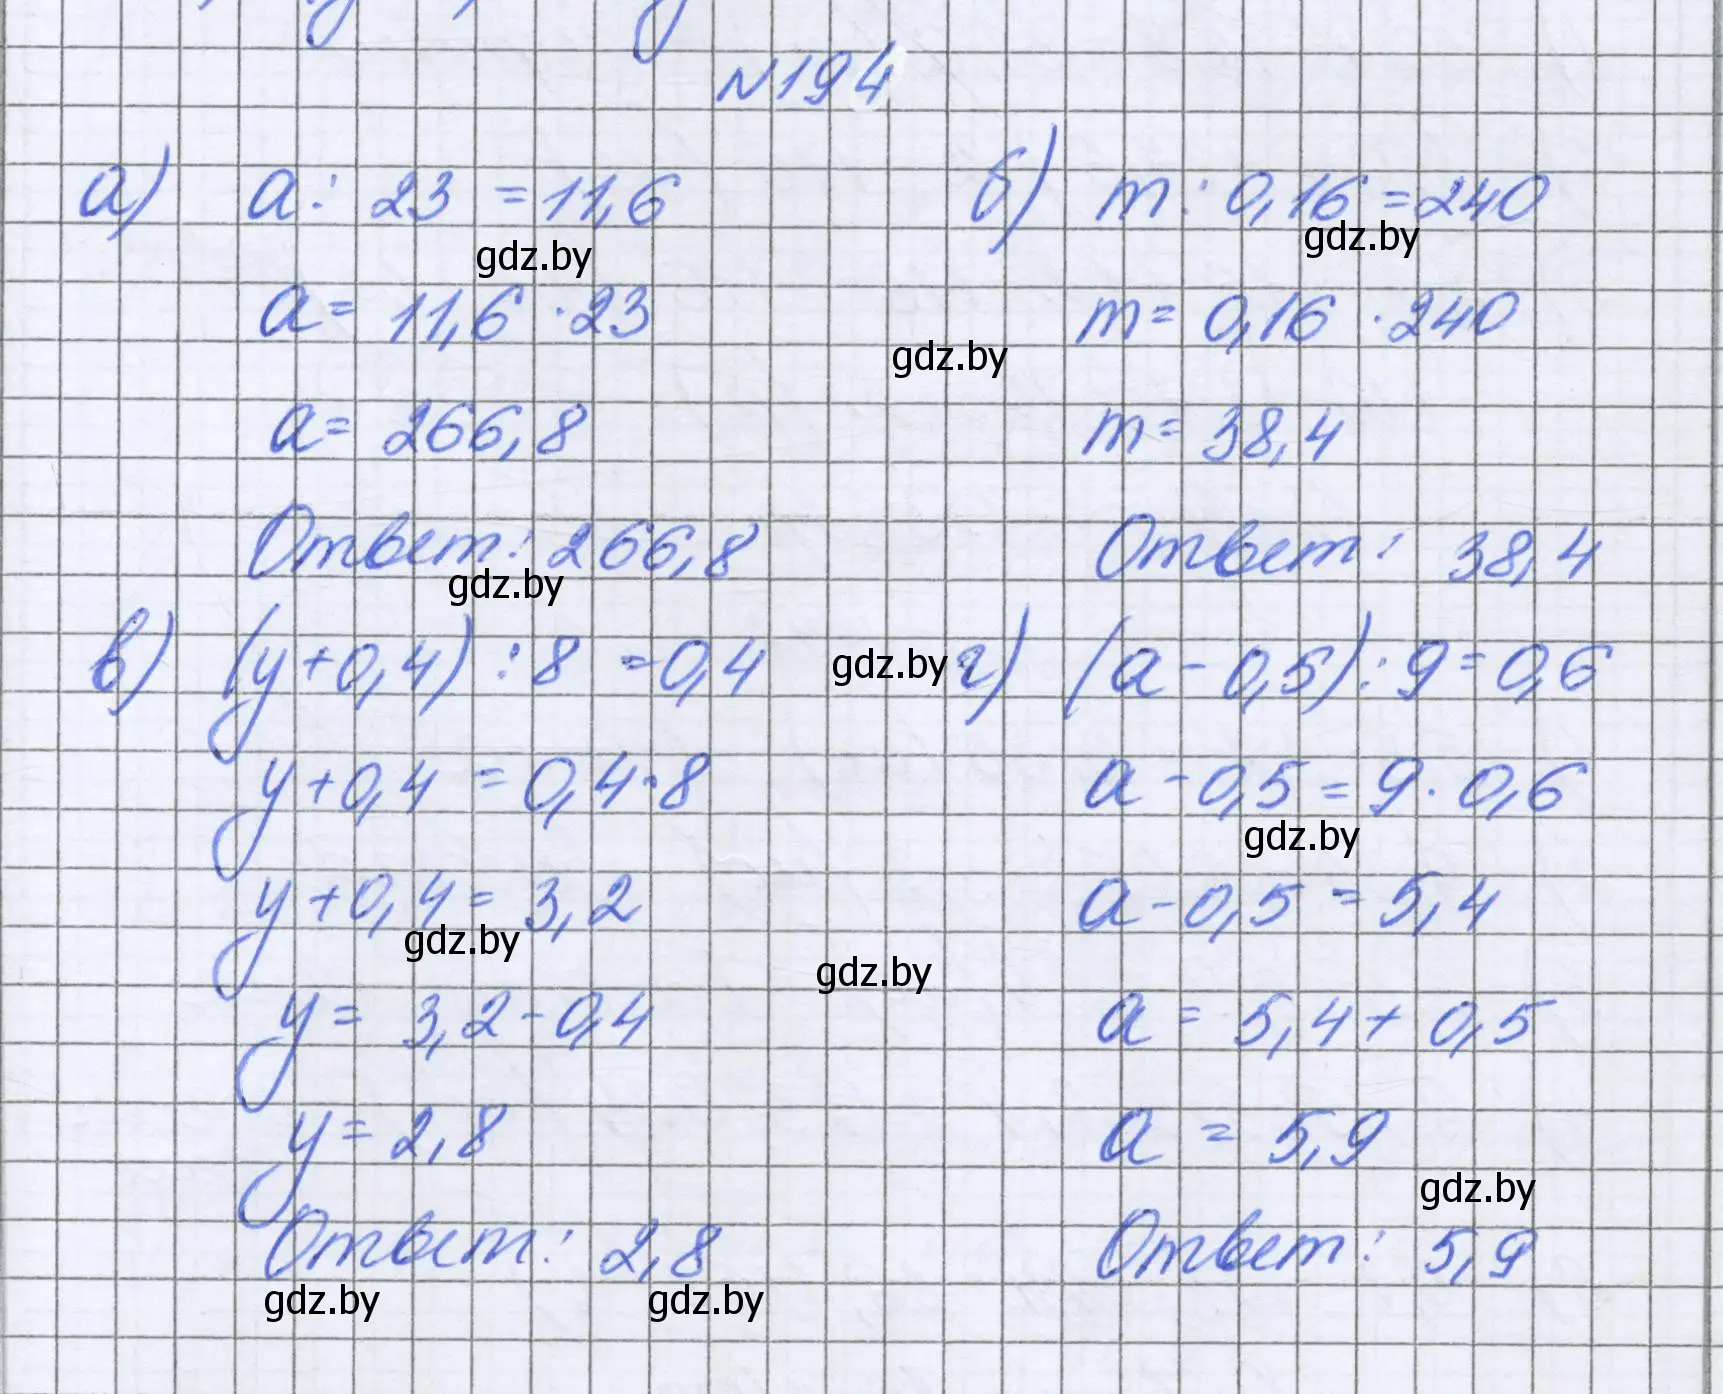 №194
а) a : 23 = 11,6
gdz.by
a = 11,6 · 23
a = 266,8
Ответ: 266,8
gdz.by
б) m : 0,16 = 240
gdz.by
m = 0,16 · 240
gdz.by
m = 38,4
Ответ: 38,4
в) (y + 0,4) : 8 = 0,4
gdz.by
y + 0,4 = 0,4 · 8
y + 0,4 = 3,2
gdz.by
gdz.by
y = 3,2 - 0,4
y = 2,8
Ответ: 2,8
gdz.by
gdz.by
г) (a - 0,5) : 9 = 0,6
a - 0,5 = 9 · 0,6
gdz.by
a - 0,5 = 5,4
a = 5,4 + 0,5
a = 5,9
gdz.by
Ответ: 5,9